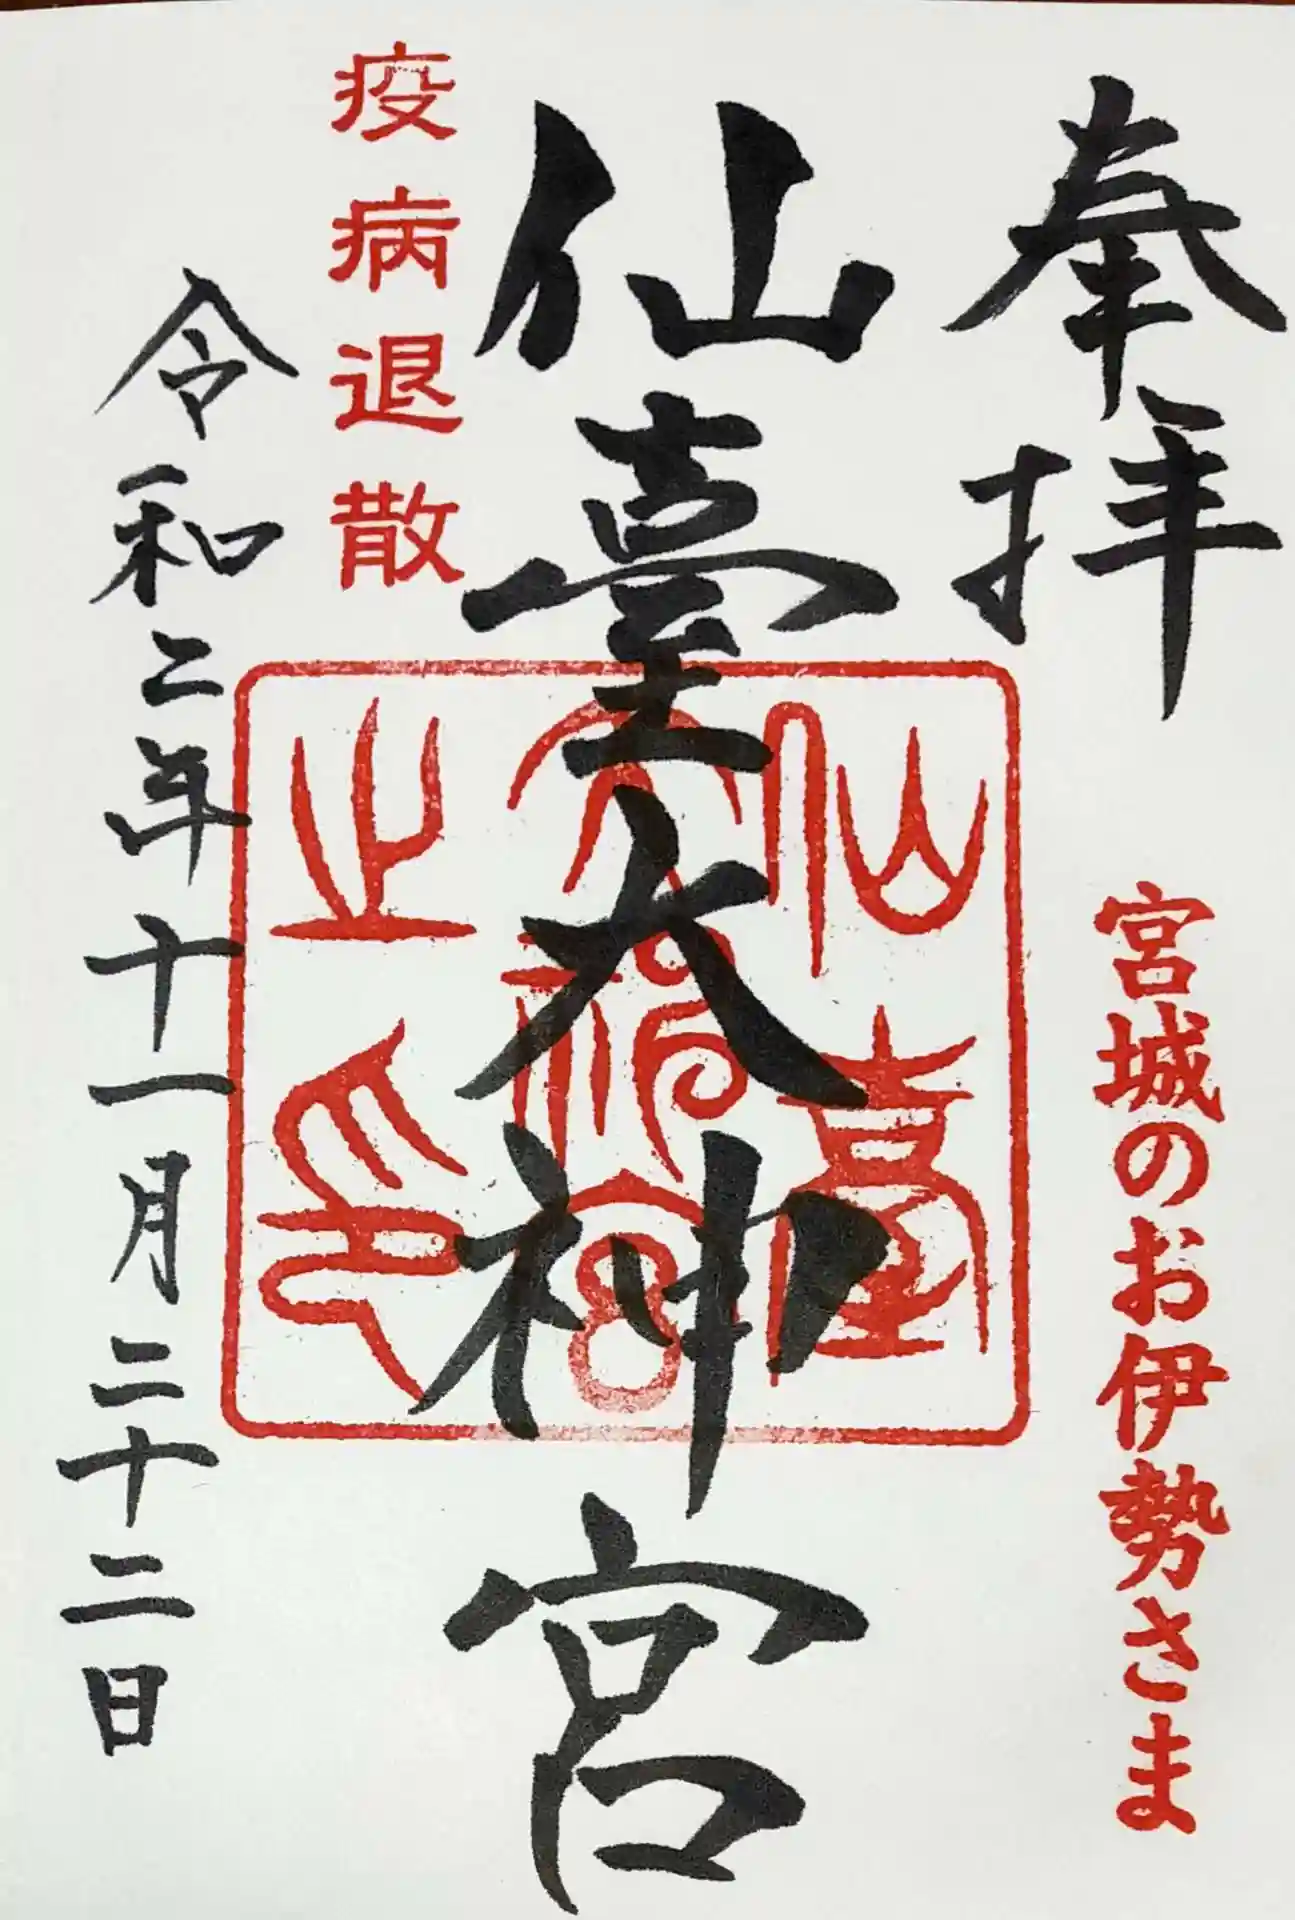 奉拝
宮城のお伊勢さま
仙臺大神宮
仙臺
大神宮
之印
疫病退散
令和二年十一月二十二日